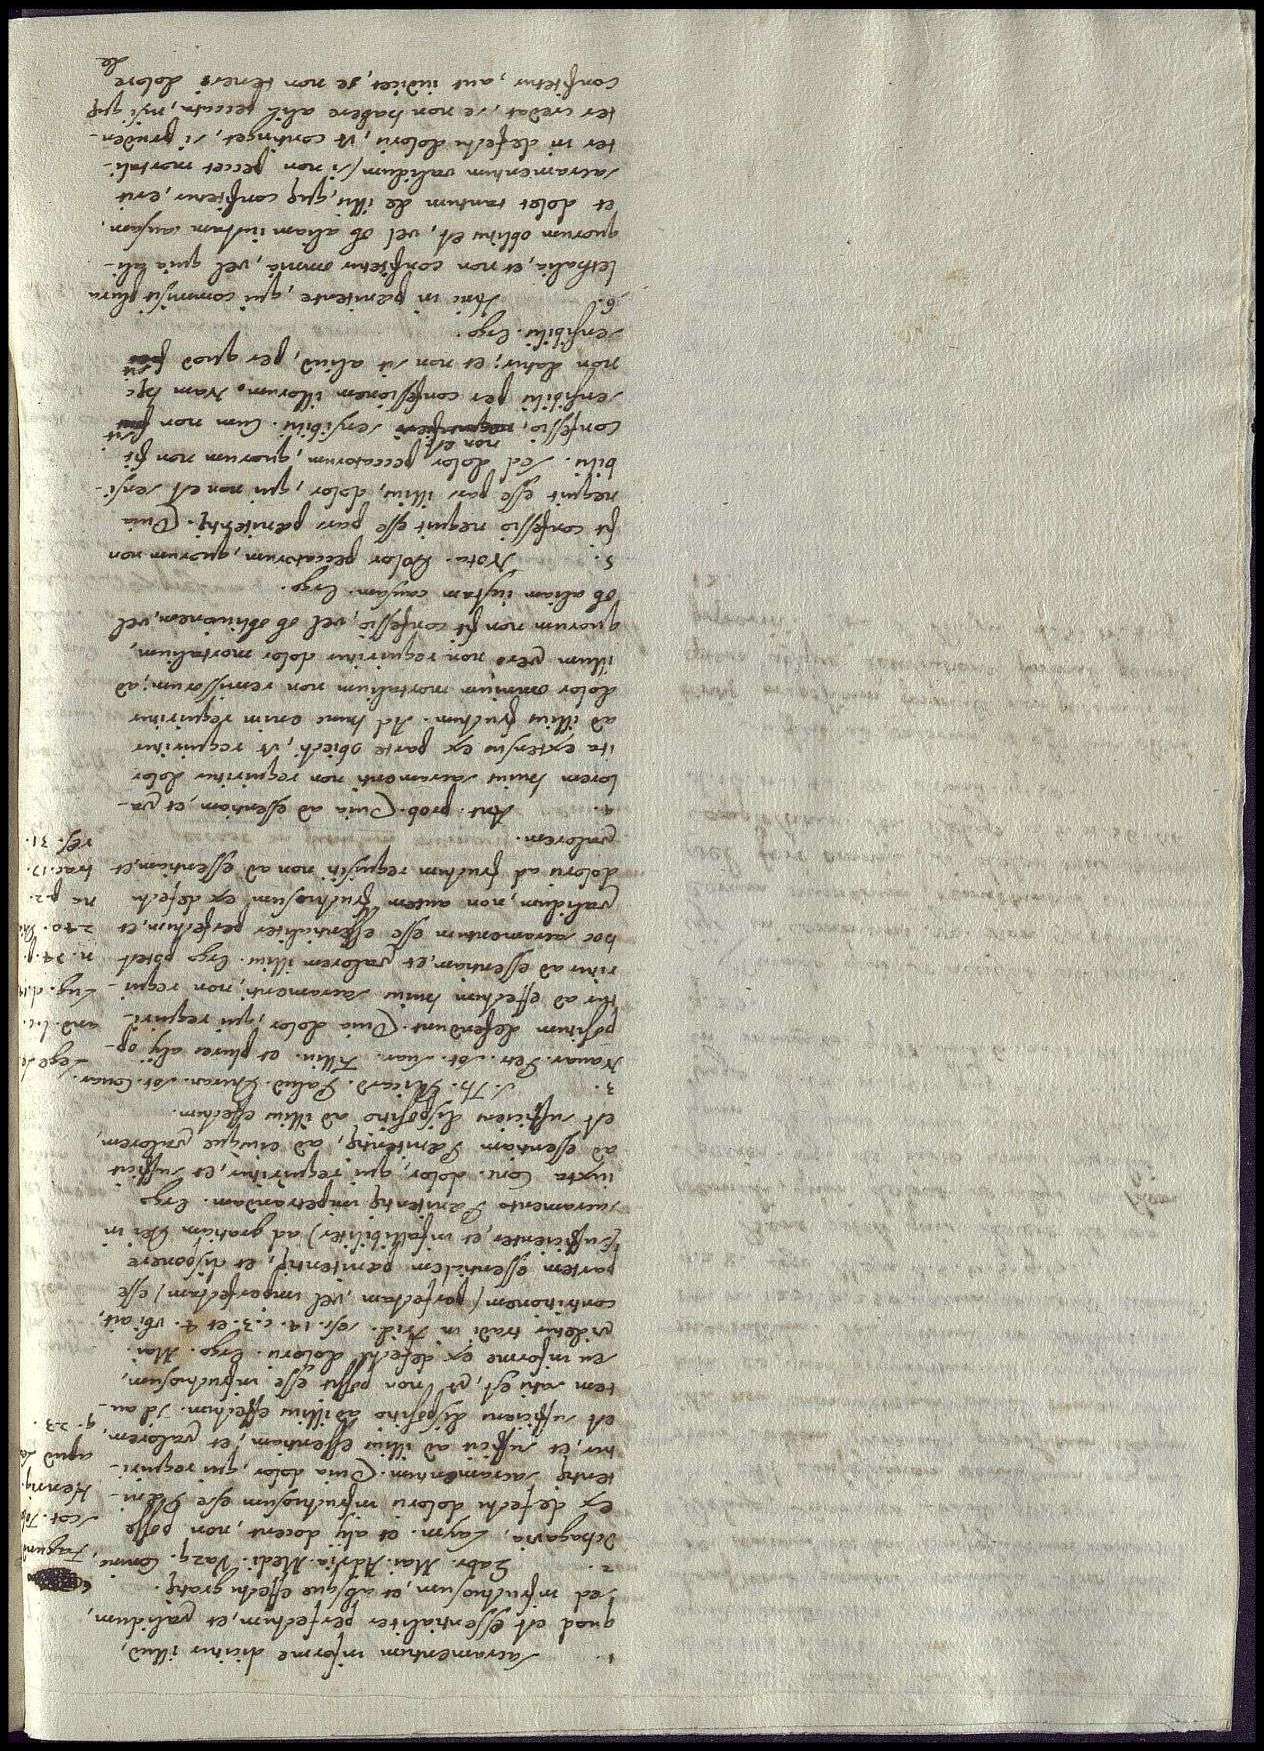 1. Sacramentum informe dicitur illud,
quod est essentialiter perfectum, et validum,
sed infructuosum, et absque effectu gratię.
2. Gabr. Mai. Adria. Medi. Vazq. Conin.
Ochagavia, Laym. et alij docent, non posse
ex defectu doloris infructuosum esse Pęni-
tentię sacramentum. Quia dolor, qui requiri-
tur, et sufficit ad illius essentiam, et valorem,
est sufficiens dispositio ad illius effectum. Id au-
tem satis est, vt, non possit esse infructuosum,
seu informe ex defectu doloris. Ergo. Mai.
videtur tradi in Trid. ses. 14. c. 3. et 4. vbi ait,
contritionem (perfectam, vel imperfectam) esse
partem essentialem pęnitentię, et disponere
(sufficienter, et infallibiliter) ad gratiam Dei in
sacramento Pęnitentię impetrandam. Ergo
iuxta Conc. dolor, qui requiritur, et sufficit
ad essentiam Pęnitentię, ad eiusque valorem,
est sufficiens dispositio ad illius effectum.
3. S. Th. Ricard. Palud. Duran. Sot. Couar.
Nauar. Petr. Sot. Suar. Filliu. et plures alij op-
positum defendunt. Quia dolor, qui requiri-
tur ad effectum huius sacramenti, non requi-
ritur ad essentiam, et valorem illius. Ergo potest
hoc sacramentum esse essentialiter perfectum, et
validum, non autem fructuosum ex defectu
doloris ad fructum requisiti, non ad essentiam, et
valorem.
4. Ant. prob. Quia ad essentiam, et va-
lorem huius sacramenti non requiritur dolor
ita extensus ex parte obiecti, vt requiritur
ad illius fructum. Ad hunc enim requiritur
dolor omnium mortalium non remissorum; ad
illum vero non requiritur dolor mortalium,
quorum non fit confessio, vel ob obliuionem, vel
ob aliam iustam causam. Ergo.
5. Nota. Dolor peccatorum, quorum non
fit confessio nequit esse pars pęnitentię. Quia
nequit esse pars illius, dolor, qui non est sensi-
bilis. Sed dolor peccatorum, quorum non fit
confessio, non est sensibilis. Cum non sit
sensibilis per confessionem illorum. Nam hęc
non datur; et non sit aliud, per quod sit
sensibilis. Ergo.
6. Hinc in pęnitente, qui commisit plura
lethalia, et non confitetur omnia, vel quia ali-
quorum oblitus est, vel ob aliam iustam causam,
et dolet tantum de illis, quę confitetur, erit
sacramentum validum (si non peccet mortali-
ter in defectu doloris, vt continget, si pruden-
ter credat, se non habere alia peccata, nisi quę
confitetur, aut iudicet, se non teneri dolore
de
Henriq.
apud
q. 23.
Lege
Lug.
240.
trac. 17.
res. 31.